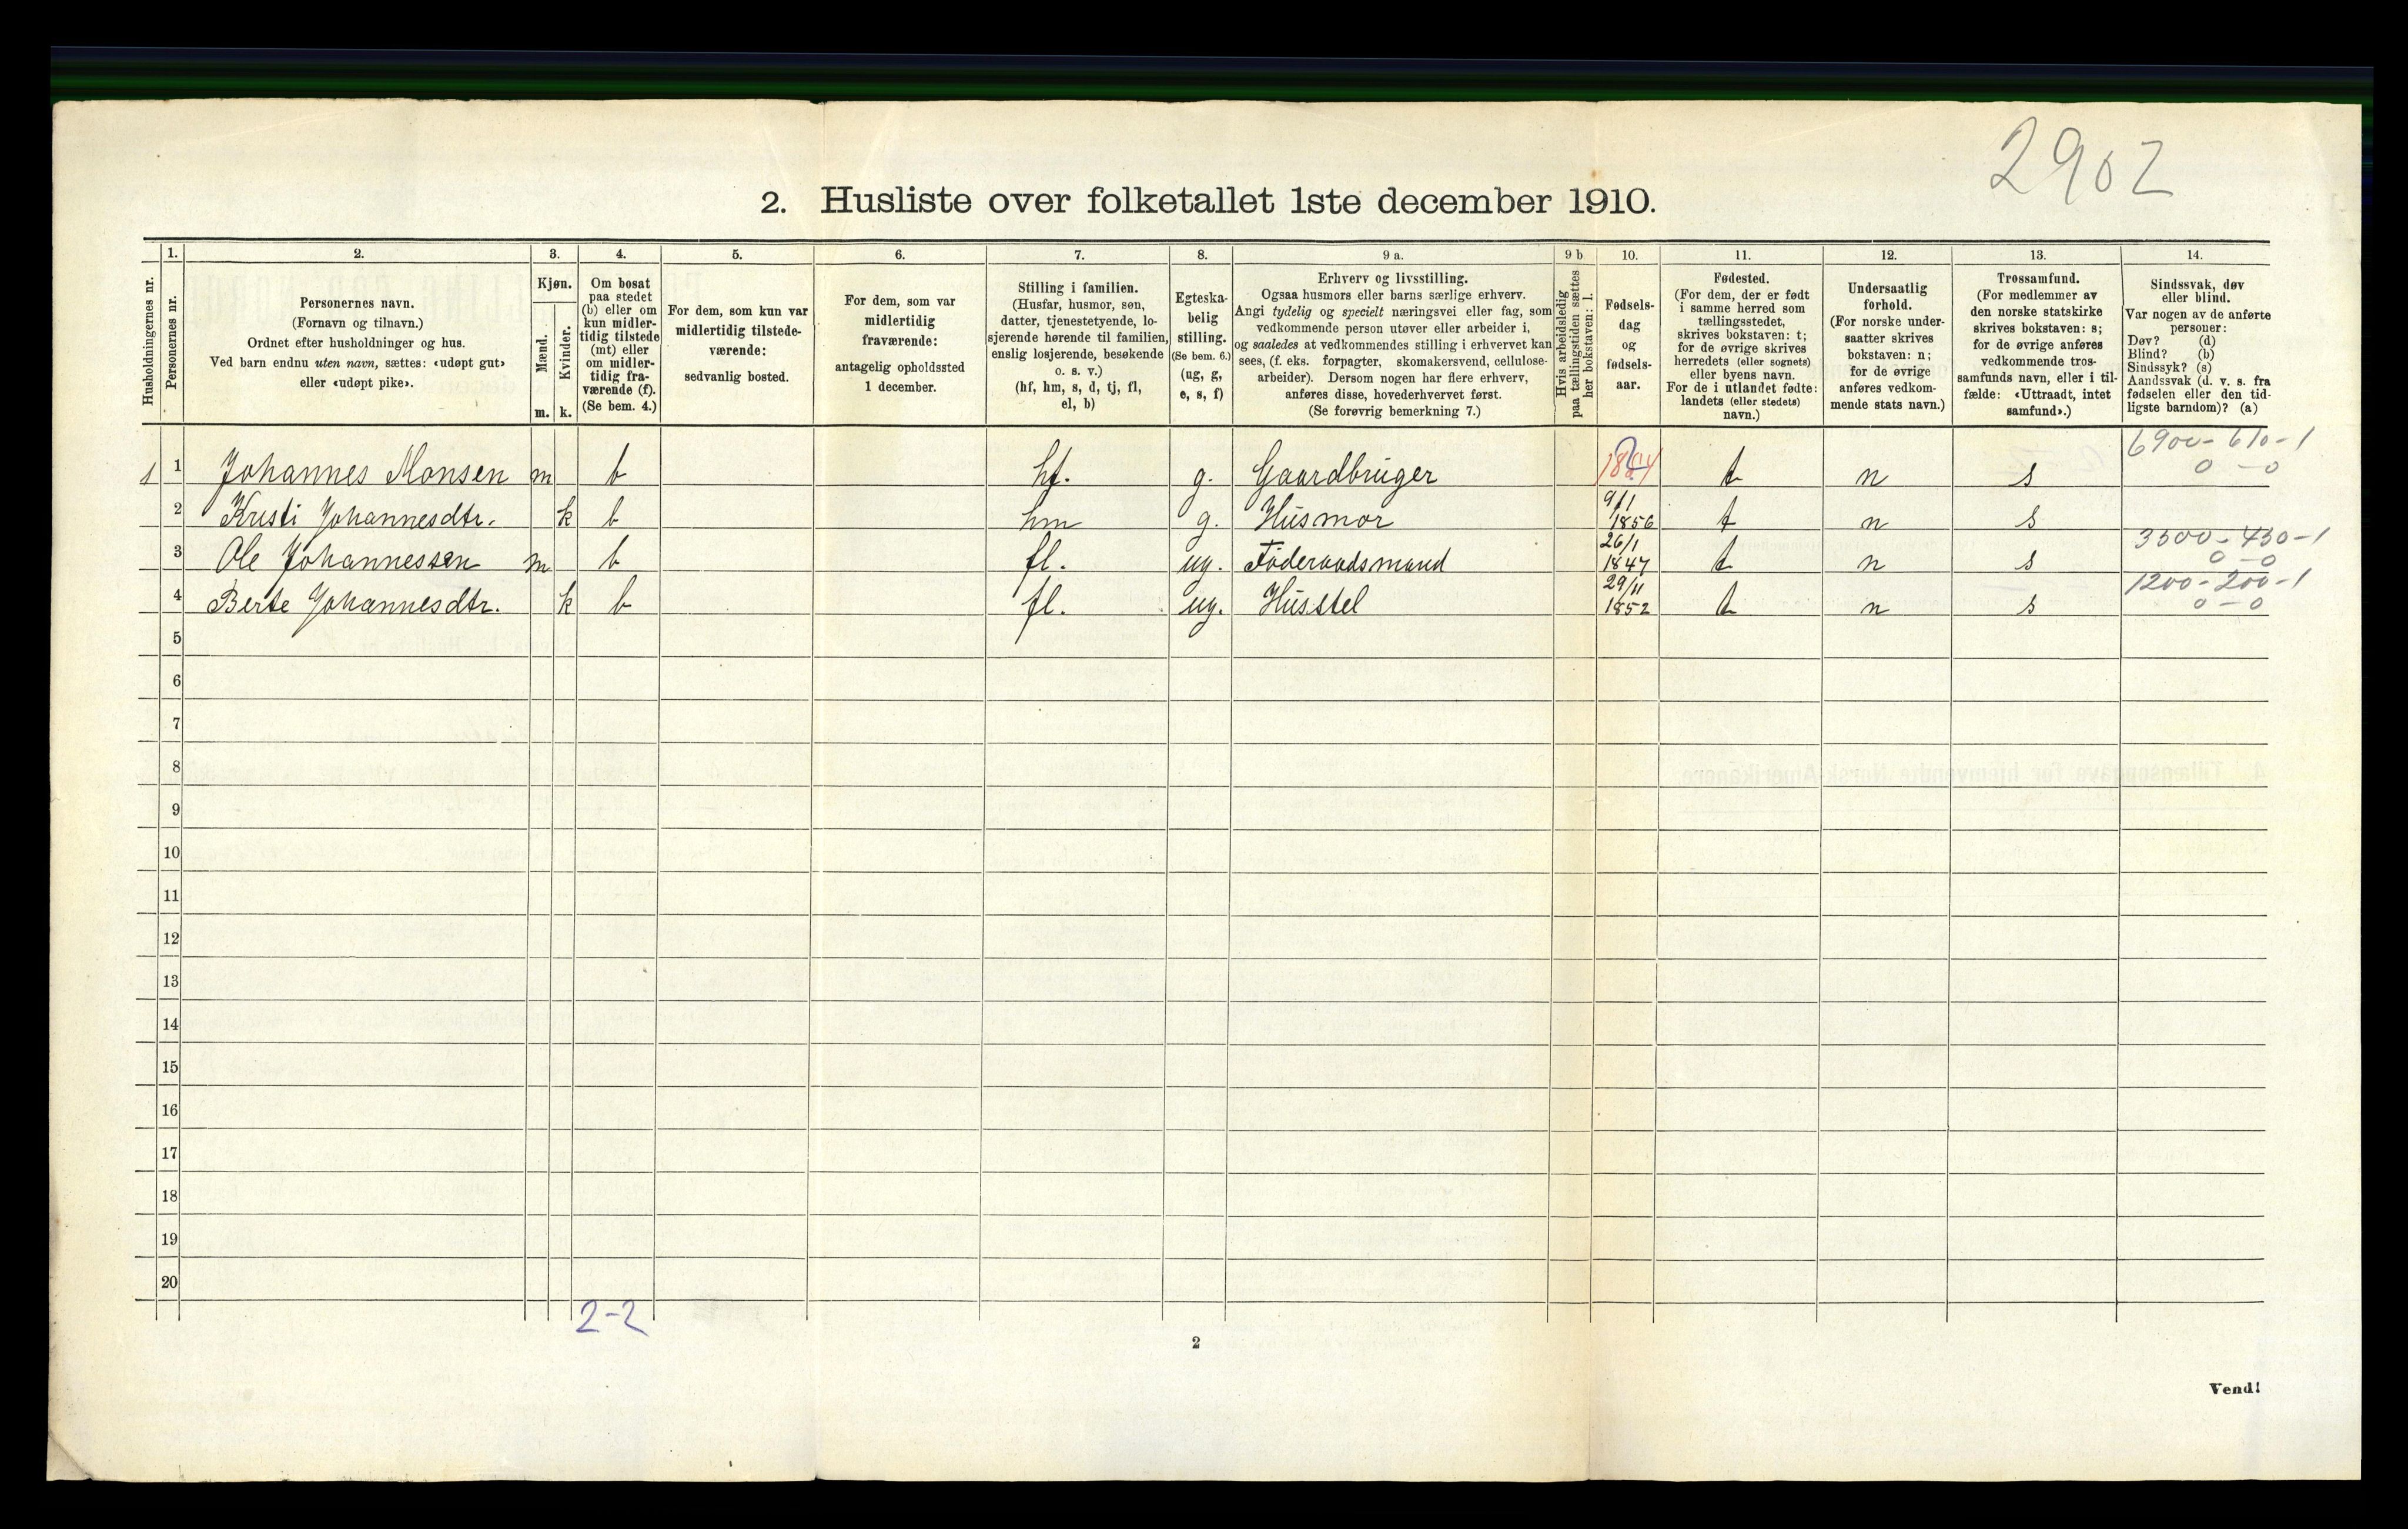 2902
2. Husliste over folketallet 1ste december 1910.
Husholdningernes nr.
1.
Personernes nr.
2.
Personernes navn.
(Fornavn og tilnavn.)
Ordnet efter husholdninger og hus.
Ved barn endnu uten navn, sættes: «udøpt gut»
eller «udøpt pike».
3.
Kjøn.
Mænd.
Kvinder.
m. k.
4.
Om bosat
paa stedet
(b) eller om
kun midler-
tidig tilstede
(mt) eller
om midler-
tidig fra-
værende (f).
(Se bem. 4.)
5.
For dem, som kun var
midlertidig tilstede-
værende:
sedvanlig bosted.
6.
For dem, som var
midlertidig
fraværende:
antagelig opholdssted
1 december.
7.
Stilling i familien.
(Husfar, husmor, søn,
datter, tjenestetyende, lo-
sjerende hørende til familien,
enslig losjerende, besøkende
o. s. v.)
(hf, hm, s, d, tj, fl,
el, b)
8.
Egteska-
belig
stilling.
(Se bem. 6.)
(ug, g,
e, s, f)
9 a.
Erhverv og livsstilling.
Ogsaa husmors eller barns særlige erhverv.
Angi tydelig og specielt næringsvei eller fag, som
vedkommende person utøver eller arbeider i,
og saaledes at vedkommendes stilling i erhvervet kan
sees, (f. eks. forpagter, skomakersvend, cellulose-
arbeider). Dersom nogen har flere erhverv,
anføres disse, hovederhvervet først.
(Se forøvrig bemerkning 7.)
9 b
Hvis arbeidsledig
paa tællingstiden sættes
her bokstaven: l.
10.
Fødsels-
dag
og
fødsels-
aar.
11.
Fødested.
(For dem, der er født
i samme herred som
tællingsstedet,
skrives bokstaven: t;
for de øvrige skrives
herredets (eller sognets)
eller byens navn.
For de i utlandet fødte:
landets (eller stedets)
navn.)
12.
Undersaatlig
forhold.
(For norske under-
saatter skrives
bokstaven: n;
for de øvrige
anføres vedkom-
mende stats navn.)
13.
Trossamfund.
(For medlemmer av
den norske statskirke
skrives bokstaven: s;
for de øvrige anføres
vedkommende tros-
samfunds navn, eller i til-
fælde: «Uttraadt, intet
samfund».)
14.
Sindssvak, døv
eller blind.
Var nogen av de anførte
personer:
Døv? (d)
Blind? (b)
Sindssyk? (s)
Aandssvak (d. v. s. fra
fødselen eller den tid-
ligste barndom)? (a)
6900-610-1
1 1 Johannes Monsen m b hf. g. Gaardbruger t n s 0-0
9/1
2 Kristi Johannesdtr. k b hm g. Husmor 1856 t n s
26/1 3500-430-1
3 Ole Johannessen m b fl. ug. Föderaadsmand 1847 t n s 0-0
29/11 1200-200-1
4 Berte Johannesdtr. k b fl. ug. Husstel 1852 t n s 0-0
5
6
7
8
9
10
11
12
13
14
15
16
17
18
19
20
2-2
2
Vend!